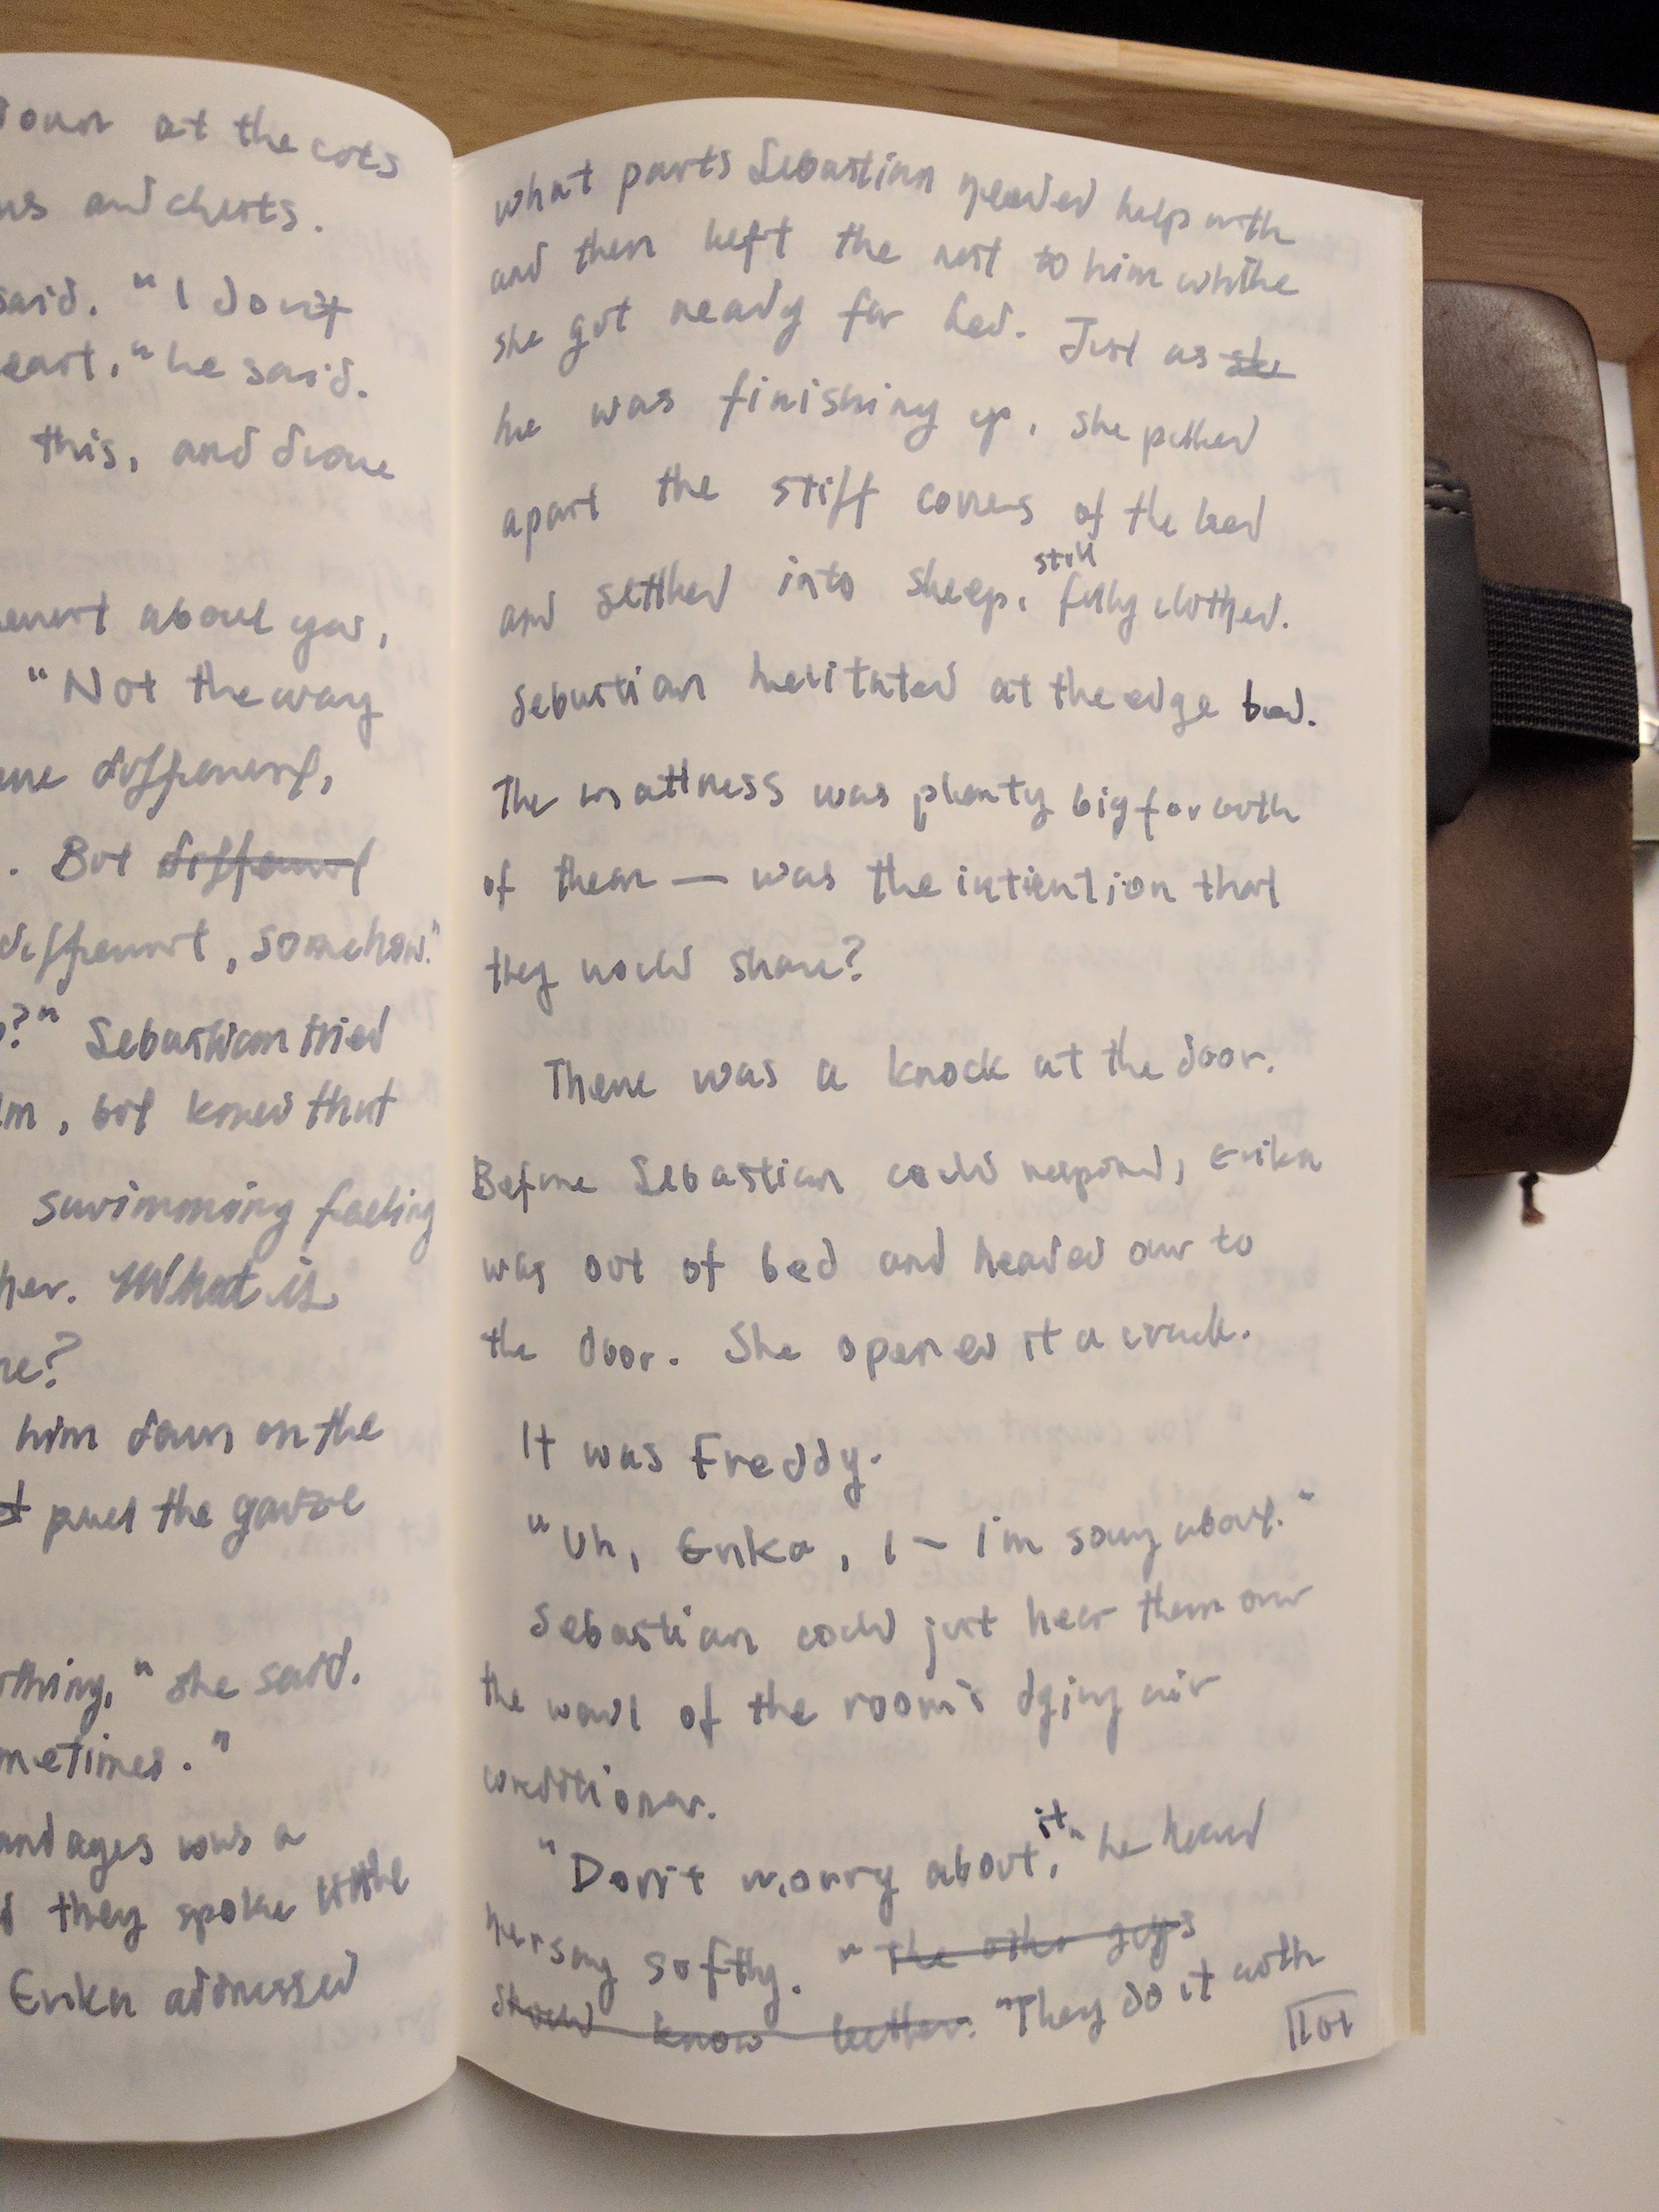 down at the cots
ns and chests.
said. "I don't
eart," he said.
this, and drove
erent about you,
"Not the way
ere different,
. But different
different, somehow."
?" Sebastian tried
m, but knew that
swimming feeling
her. What is
re?
him down on the
pull the gauze
thing," she said.
metimes."
andages was a
d they spoke little
Erika addressed
what parts Sebastian needed help with
and then left the rest to him while
she got ready for bed. Just as she
he was finishing up, she pulled
apart the stiff covers of the bed
and settled into sleep, still fully clothed.
Sebastian hesitated at the edge bed.
The mattress was plenty big for both
of them — was the intention that
they would share?
There was a knock at the door.
Before Sebastian could respond, Erika
was out of bed and headed over to
the door. She opened it a crack.
It was Freddy.
"Uh, Erika, I – I'm sorry about."
Sebastian could just hear them over
the wail of the room's dying air
conditioner.
"Don't worry about it," he heard
her say softly. "The other guys
should know better. "They do it with
101